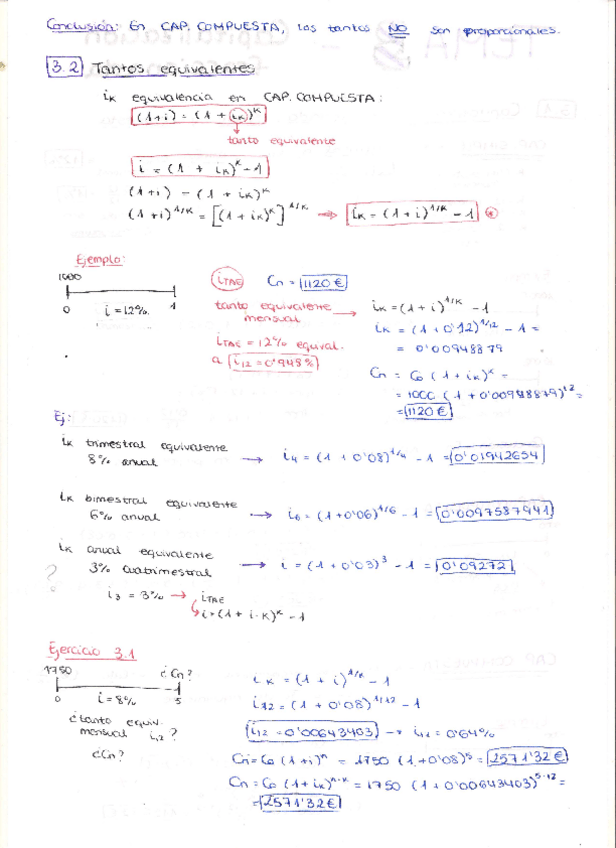 Conclusión: En CAP. COMPUESTA, los tantos NO son proporcionales.
3.2 Tantos equivalentes
iK equivalencia en CAP. COMPUESTA:
(1+i) = (1 + iK)^K
tanto equivalente
i = (1 + iK)^K - 1
(1+i) - (1 + iK)^K
(1+i)^1/K = [(1 + iK)^K]^1/K → iK = (1+i)^1/K - 1
Ejemplo:
1000
0 i = 12% 1
iTAE Cn = 1120 €
tanto equivalente mensual → iK = (1+i)^1/K - 1
iK = (1 + 0'12)^1/12 - 1 =
= 0'00948879
iTAE = 12% equival.
a i12 = 0'948%
Cn = C0 (1 + iK)^K =
= 1000 (1 + 0'00948879)^12 =
= 1120 €
Ej:
iK trimestral equivalente
8% anual → i4 = (1 + 0'08)^1/4 - 1 = 0'01942654
iK bimestral equivalente
6% anual → i6 = (1+0'06)^1/6 - 1 = 0'0097587941
iK anual equivalente
3% cuatrimestral → i = (1 + 0'03)^3 - 1 = 0'09272
?
i3 = 3% → iTAE
i = (1 + i·K)^K - 1
Ejercicio 3.1
1750 ¿Cn?
0 i = 8% 5
¿tanto equiv.
mensual i12?
¿Cn?
iK = (1 + i)^1/K - 1
i12 = (1 + 0'08)^1/12 - 1
i12 = 0'00643403 → i12 = 0'64%
Cn = C0 (1+i)^n = 1750 (1+0'08)^5 = 2571'32 €
Cn = C0 (1+iK)^n·K = 1750 (1+0'00643403)^5·12 =
= 2571'32 €